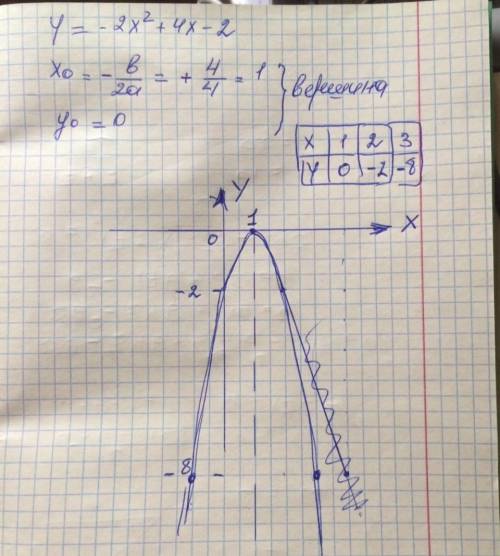 y = - 2x² + 4x - 2
x₀ = - в/2а = + 4/4 = 1
y₀ = 0
вершина
X 1 2 3
Y 0 -2 -8
Y
1
X
0
-2
-8